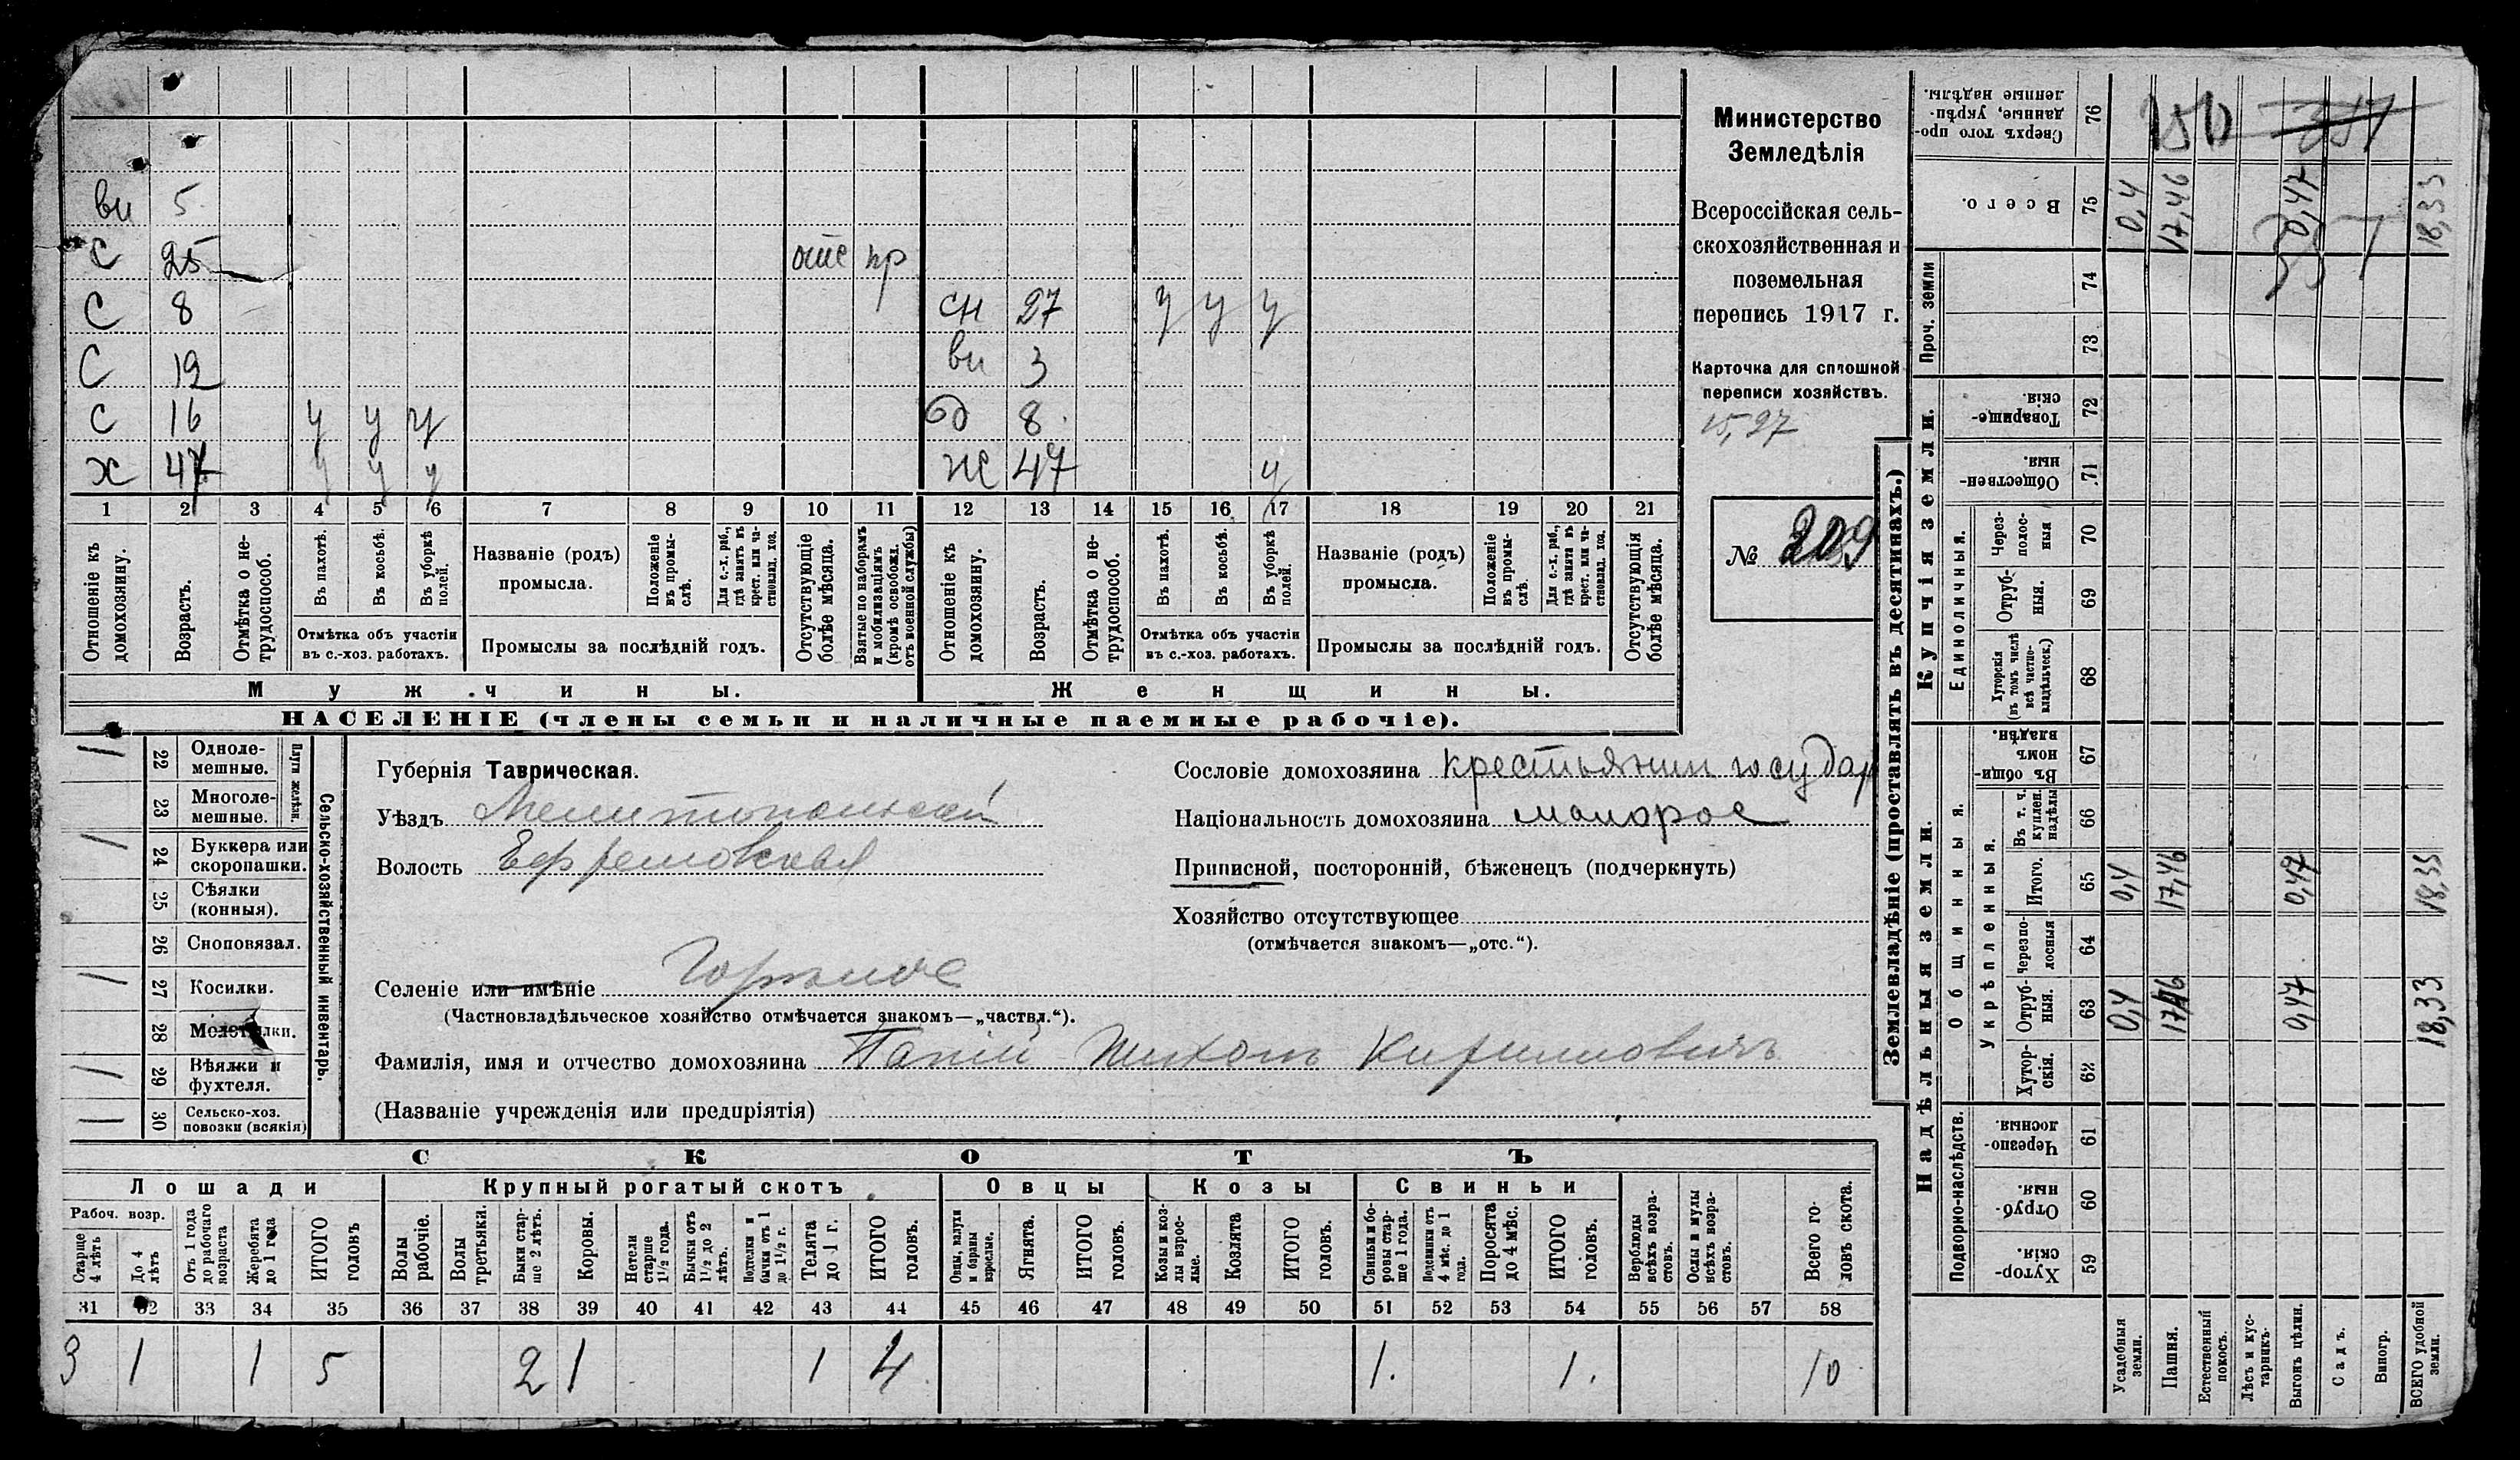 ви 5
С 25 отс пр
С 8 сн 27 у у у
С 12 ви 3
С 16 у у у д 8
х 47 у у у ж 47 у
1 2 3 4 5 6 7 8 9 10 11 12 13 14 15 16 17 18 19 20 21
Отношеніе къ домохозяину.
Возрастъ.
Отмѣтка о не-трудоспособ.
Въ пахотѣ.
Въ косьбѣ.
Въ уборкѣ полей.
Отмѣтка объ участіи въ с.-хоз. работахъ.
Названіе (родъ) промысла.
Положеніе въ промы-слѣ.
Для с.-х. раб., гдѣ занятъ въ крест. или ча-стновлад. хоз.
Промыслы за послѣдній годъ.
Отсутствующіе болѣе мѣсяца.
Взятые по наборамъ и мобилизаціямъ (кромѣ освобожд. отъ военной службы)
Отношеніе къ домохозяину.
Возрастъ.
Отмѣтка о не-трудоспособ.
Въ пахотѣ.
Въ косьбѣ.
Въ уборкѣ полей.
Отмѣтка объ участіи въ с.-хоз. работахъ.
Названіе (родъ) промысла.
Положеніе въ промы-слѣ.
Для с.-х. раб., гдѣ занята въ крест. или ча-стновлад. хоз.
Промыслы за послѣдній годъ.
Отсутствующія болѣе мѣсяца.
Мужчины.
Женщины.
НАСЕЛЕНІЕ (члены семьи и наличные наемные рабочіе).
Министерство
Земледѣлія
Всероссійская сель-
скохозяйственная и
поземельная
перепись 1917 г.
Карточка для сплошной
переписи хозяйствъ.
15,27
№ 209
Сельско-хозяйственный инвентарь.
Плуги желѣзн.
/ 22 Одноле-мешные.
23 Многоле-мешные.
/ 24 Буккера или скоропашки.
25 Сѣялки (конныя).
26 Сноповязал.
/ 27 Косилки.
28 Молотилки.
/ 29 Вѣялки и фухтеля.
/ 30 Сельско-хоз. повозки (всякія)
Губернія Таврическая.
Уѣздъ Мелитопольскій
Волость Ефремовская
Селеніе или имѣніе Горькое
(Частновладѣльческое хозяйство отмѣчается знакомъ—„частвл.“).
Фамилія, имя и отчество домохозяина Папій Тихонъ Кириловичъ
(Названіе учрежденія или предпріятія)
Сословіе домохозяина крестьянин государ
Національность домохозяина малорос
Приписной, посторонній, бѣженецъ (подчеркнуть)
Хозяйство отсутствующее
(отмѣчается знакомъ—„отс.“).
СКОТЪ
Лошади
Крупный рогатый скотъ
Овцы
Козы
Свиньи
Рабоч. возр.
Старше 4 лѣтъ
До 4 лѣтъ
Отъ 1 года до рабочаго возраста
Жеребята до 1 года
ИТОГО головъ
Волы рабочіе.
Волы третьяки.
Быки стар-ше 2 лѣтъ.
Коровы.
Нетели старше 1½ года.
Бычки отъ 1½ до 2 лѣтъ.
Подтелки и бычки отъ 1 до 1½ г.
Телята до 1 г.
ИТОГО головъ.
Овцы, валухи и бараны взрослые.
Ягнята.
ИТОГО головъ.
Козы и коз-лы взрос-лые.
Козлята
ИТОГО головъ.
Свиньи и бо-ровы стар-ше 1 года.
Подсвинки отъ 4 мѣс. до 1 года.
Поросята до 4 мѣс.
ИТОГО головъ.
Верблюды всѣхъ возра-стовъ.
Ослы и мулы всѣхъ возра-стовъ.
Всего го-ловъ скота.
31 32 33 34 35 36 37 38 39 40 41 42 43 44 45 46 47 48 49 50 51 52 53 54 55 56 57 58
3 1 1 5 2 1 1 4 1. 1. 10
Землевладѣніе (проставлять въ десятинахъ.)
Надѣльныя земли.
Купчія земли.
Проч. земли
Подворно-наслѣдств.
Общинныя.
Укрѣпленныя.
Единоличныя.
Хутор-скія. 59
Отруб-ныя. 60
Черезпо-лосныя. 61
Хутор-скія. 62
Отруб-ныя. 63 0,4 17,46 0,47 18,33
Черезпо-лосныя 64
Итого. 65 0,4 17,46 0,47 18,33
Въ т. ч. куплен. надѣлы 66
Въ общин-номъ владѣн. 67
Хуторскія (въ томъ числѣ всѣ частно-владѣльческ.) 68
Отруб-ныя. 69
Через-полос-ныя 70
Обществен-ныя. 71
Товарище-скія. 72
73
74
Всего. 75 0,4 17,46 0,47 18,33
357
Сверхъ того про-данные, укрѣп-ленные надѣлы. 76
Усадебныя земли.
Пашня.
Естественный покосъ.
Лѣсъ и кус-тарникъ.
Выгонъ цѣлин.
Садъ.
Виногр.
ВСЕГО удобной земли.